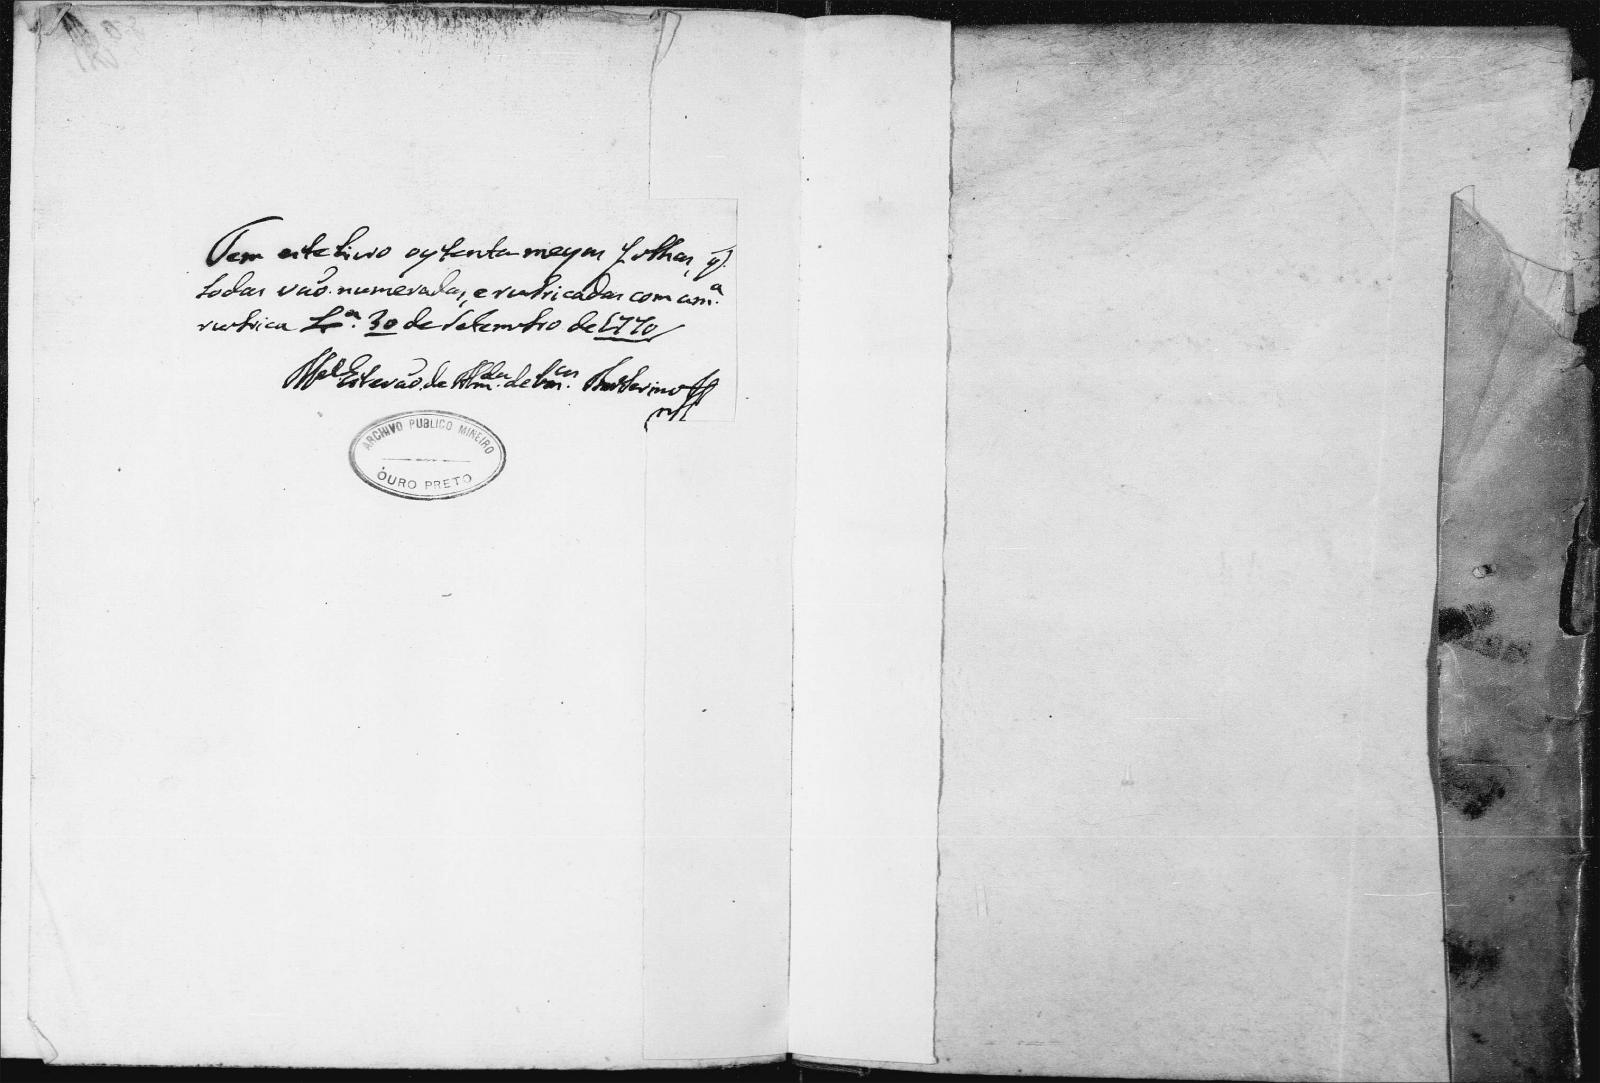 Tem este Livro oytenta meyas folhas, q̃.
todas vão numeradas, e rubricadas com a m.ª
rubrica L.ª 30 de Setembro de 1770
M.el Estevão de Alm.da de Vas.
ARCHIVO PUBLICO MINEIRO
OURO PRETO